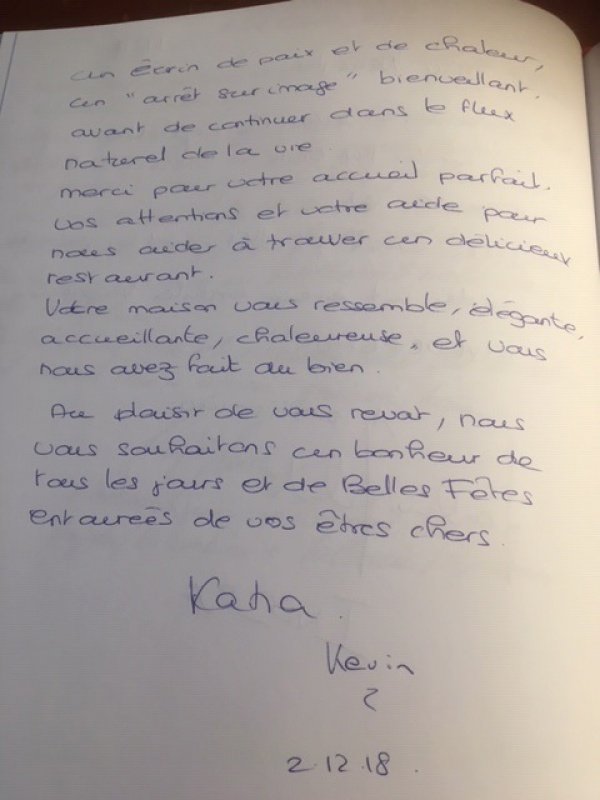 un écrin de paix et de chaleur,
un "arrêt sur image" bienveillant,
avant de continuer dans le flux
naturel de la vie.
merci pour votre accueil parfait,
vos attentions et votre aide pour
nous aider à trouver un délicieux
restaurant.
Votre maison vous ressemble, élégante,
accueillante, chaleureuse, et vous
nous avez fait du bien.
Au plaisir de vous revoir, nous
vous souhaitons un bonheur de
tous les jours et de Belles Fêtes
entourées de vos êtres chers.
Katia.
Kevin
2.12.18.